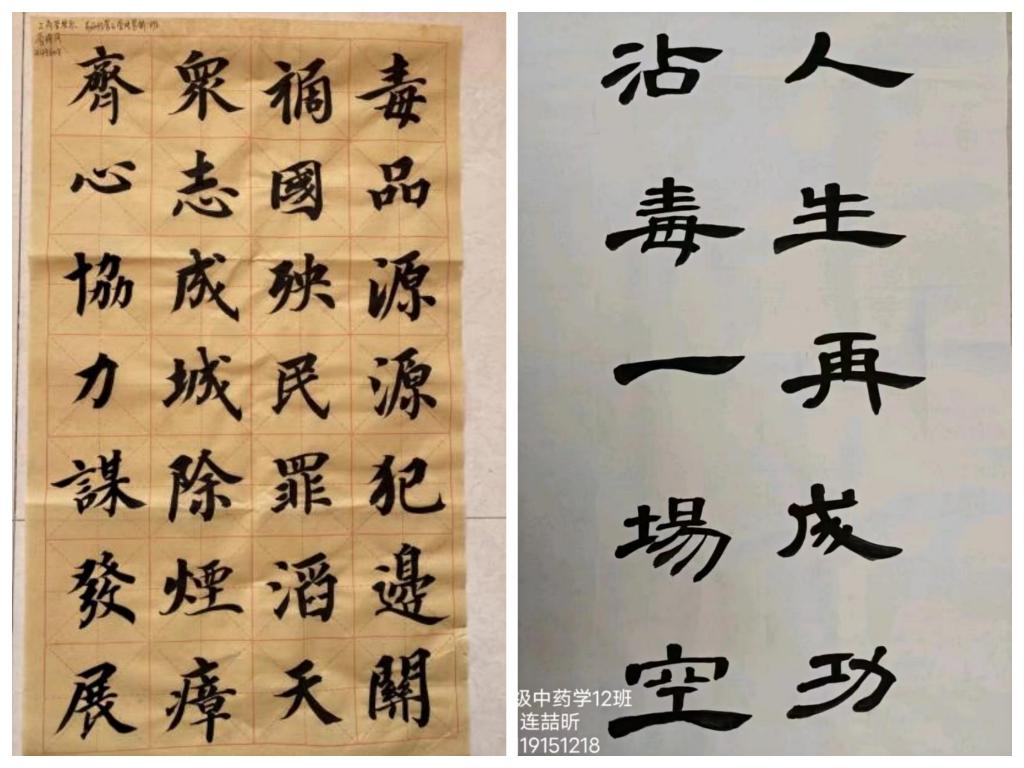 毒品源源犯邊關
禍國殃民罪滔天
眾志成城除煙瘴
齊心協力謀發展
人生再成功
沾毒一場空
级中药学12班
连喆昕
19151218